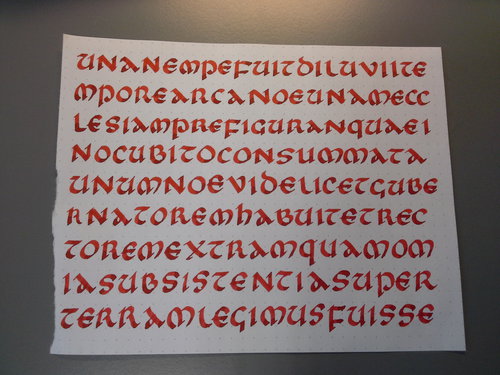 UNANEMPEFUITDILUVIITE
MPOREARCANOEUNAMECC
LESIAMPREFIGURANQUAEI
NOCUBITOCONSUMMATA
UNUMNOEVIDELICETGUBE
RNATOREMHABUITETREC
TOREMEXTRAMQUAMOM
IASUBSISTENTIASUPER
TERRAMLEGIMUSFUISSE